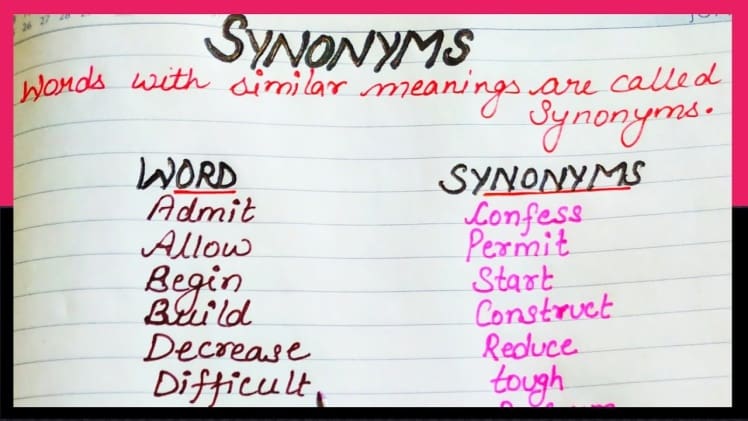 26 27 28
SYNONYMS
Words with similar meanings are called
Synonyms.
WORD SYNONYMS
Admit Confess
Allow Permit
Begin Start
Build Construct
Decrease Reduce
Difficult tough